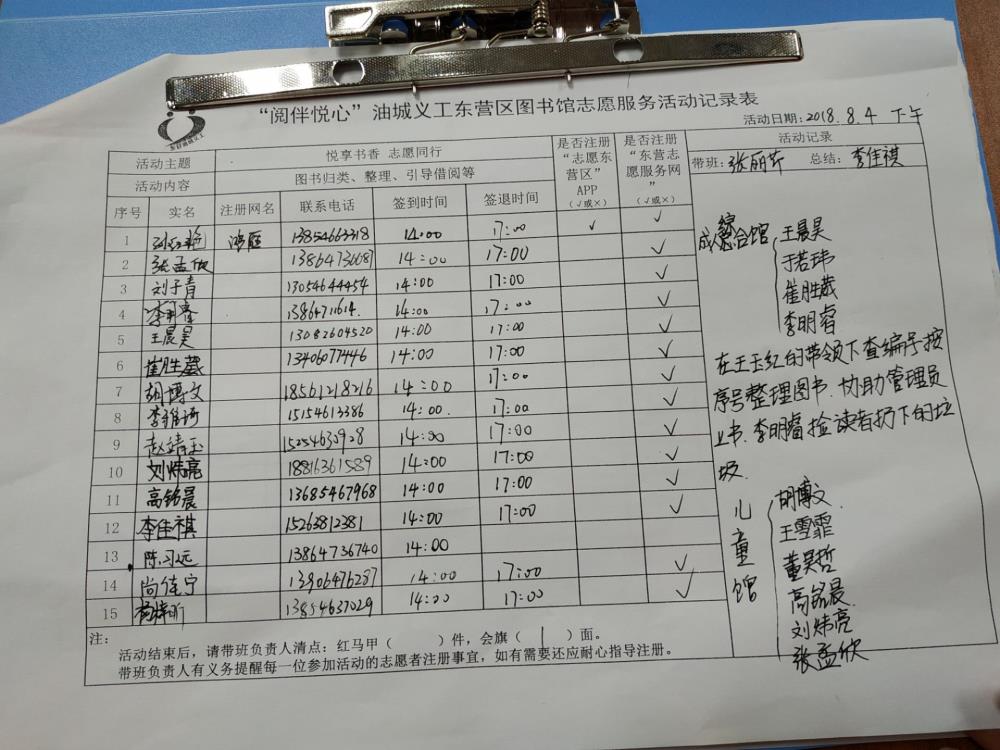 “阅伴悦心”油城义工东营区图书馆志愿服务活动记录表
活动日期: 2018.8.4 下午
活动主题 悦享书香 志愿同行 是否注册“志愿东营区”APP（√或×） 是否注册“东营志愿服务网”（√或×） 活动记录
活动内容 图书归类、整理、引导借阅等 带班: 张丽芹 总结: 李佳祺
序号 实名 注册网名 联系电话 签到时间 签退时间
1 13854663318 14:00 17:00 √ √
2 张孟欣 13864736681 14:00 17:00 √
3 刘子青 13054644454 14:00 17:00 √
4 李明睿 1386471614. 14:00 17:00 √
5 王晨昊 13082604520 14:00 17:00 √
6 崔胜葳 13406077446 14:00 17:00 √
7 胡博文 18561218216 14:00 17:00 √
8 15154613386 14:00. 17:00 √
9 赵靖玉 14:00 17:00 √
10 刘炜亮 18816361589 14:00 17:00 √
11 高铭晨 13685467968 14:00 17:00 √
12 李佳祺 15263812381 14:00 17:00 √
13 陈习远 13864736740 14:00
14 尚倚宁 13906476287 14:00 17:00 √
15 13854637029 14:00 17:00 √
成综合馆 王晨昊
于若玮
崔胜葳
李明睿
在王玉红的带领下查编号按
序号整理图书.协助管理员
上书.李明睿捡读者扔下的垃
圾.
儿童馆 胡博文
王雪霏
董昊哲
高铭晨
刘炜亮
张孟欣
注:
活动结束后，请带班负责人清点：红马甲（ ）件，会旗（ 1 ）面。
带班负责人有义务提醒每一位参加活动的志愿者注册事宜，如有需要还应耐心指导注册。